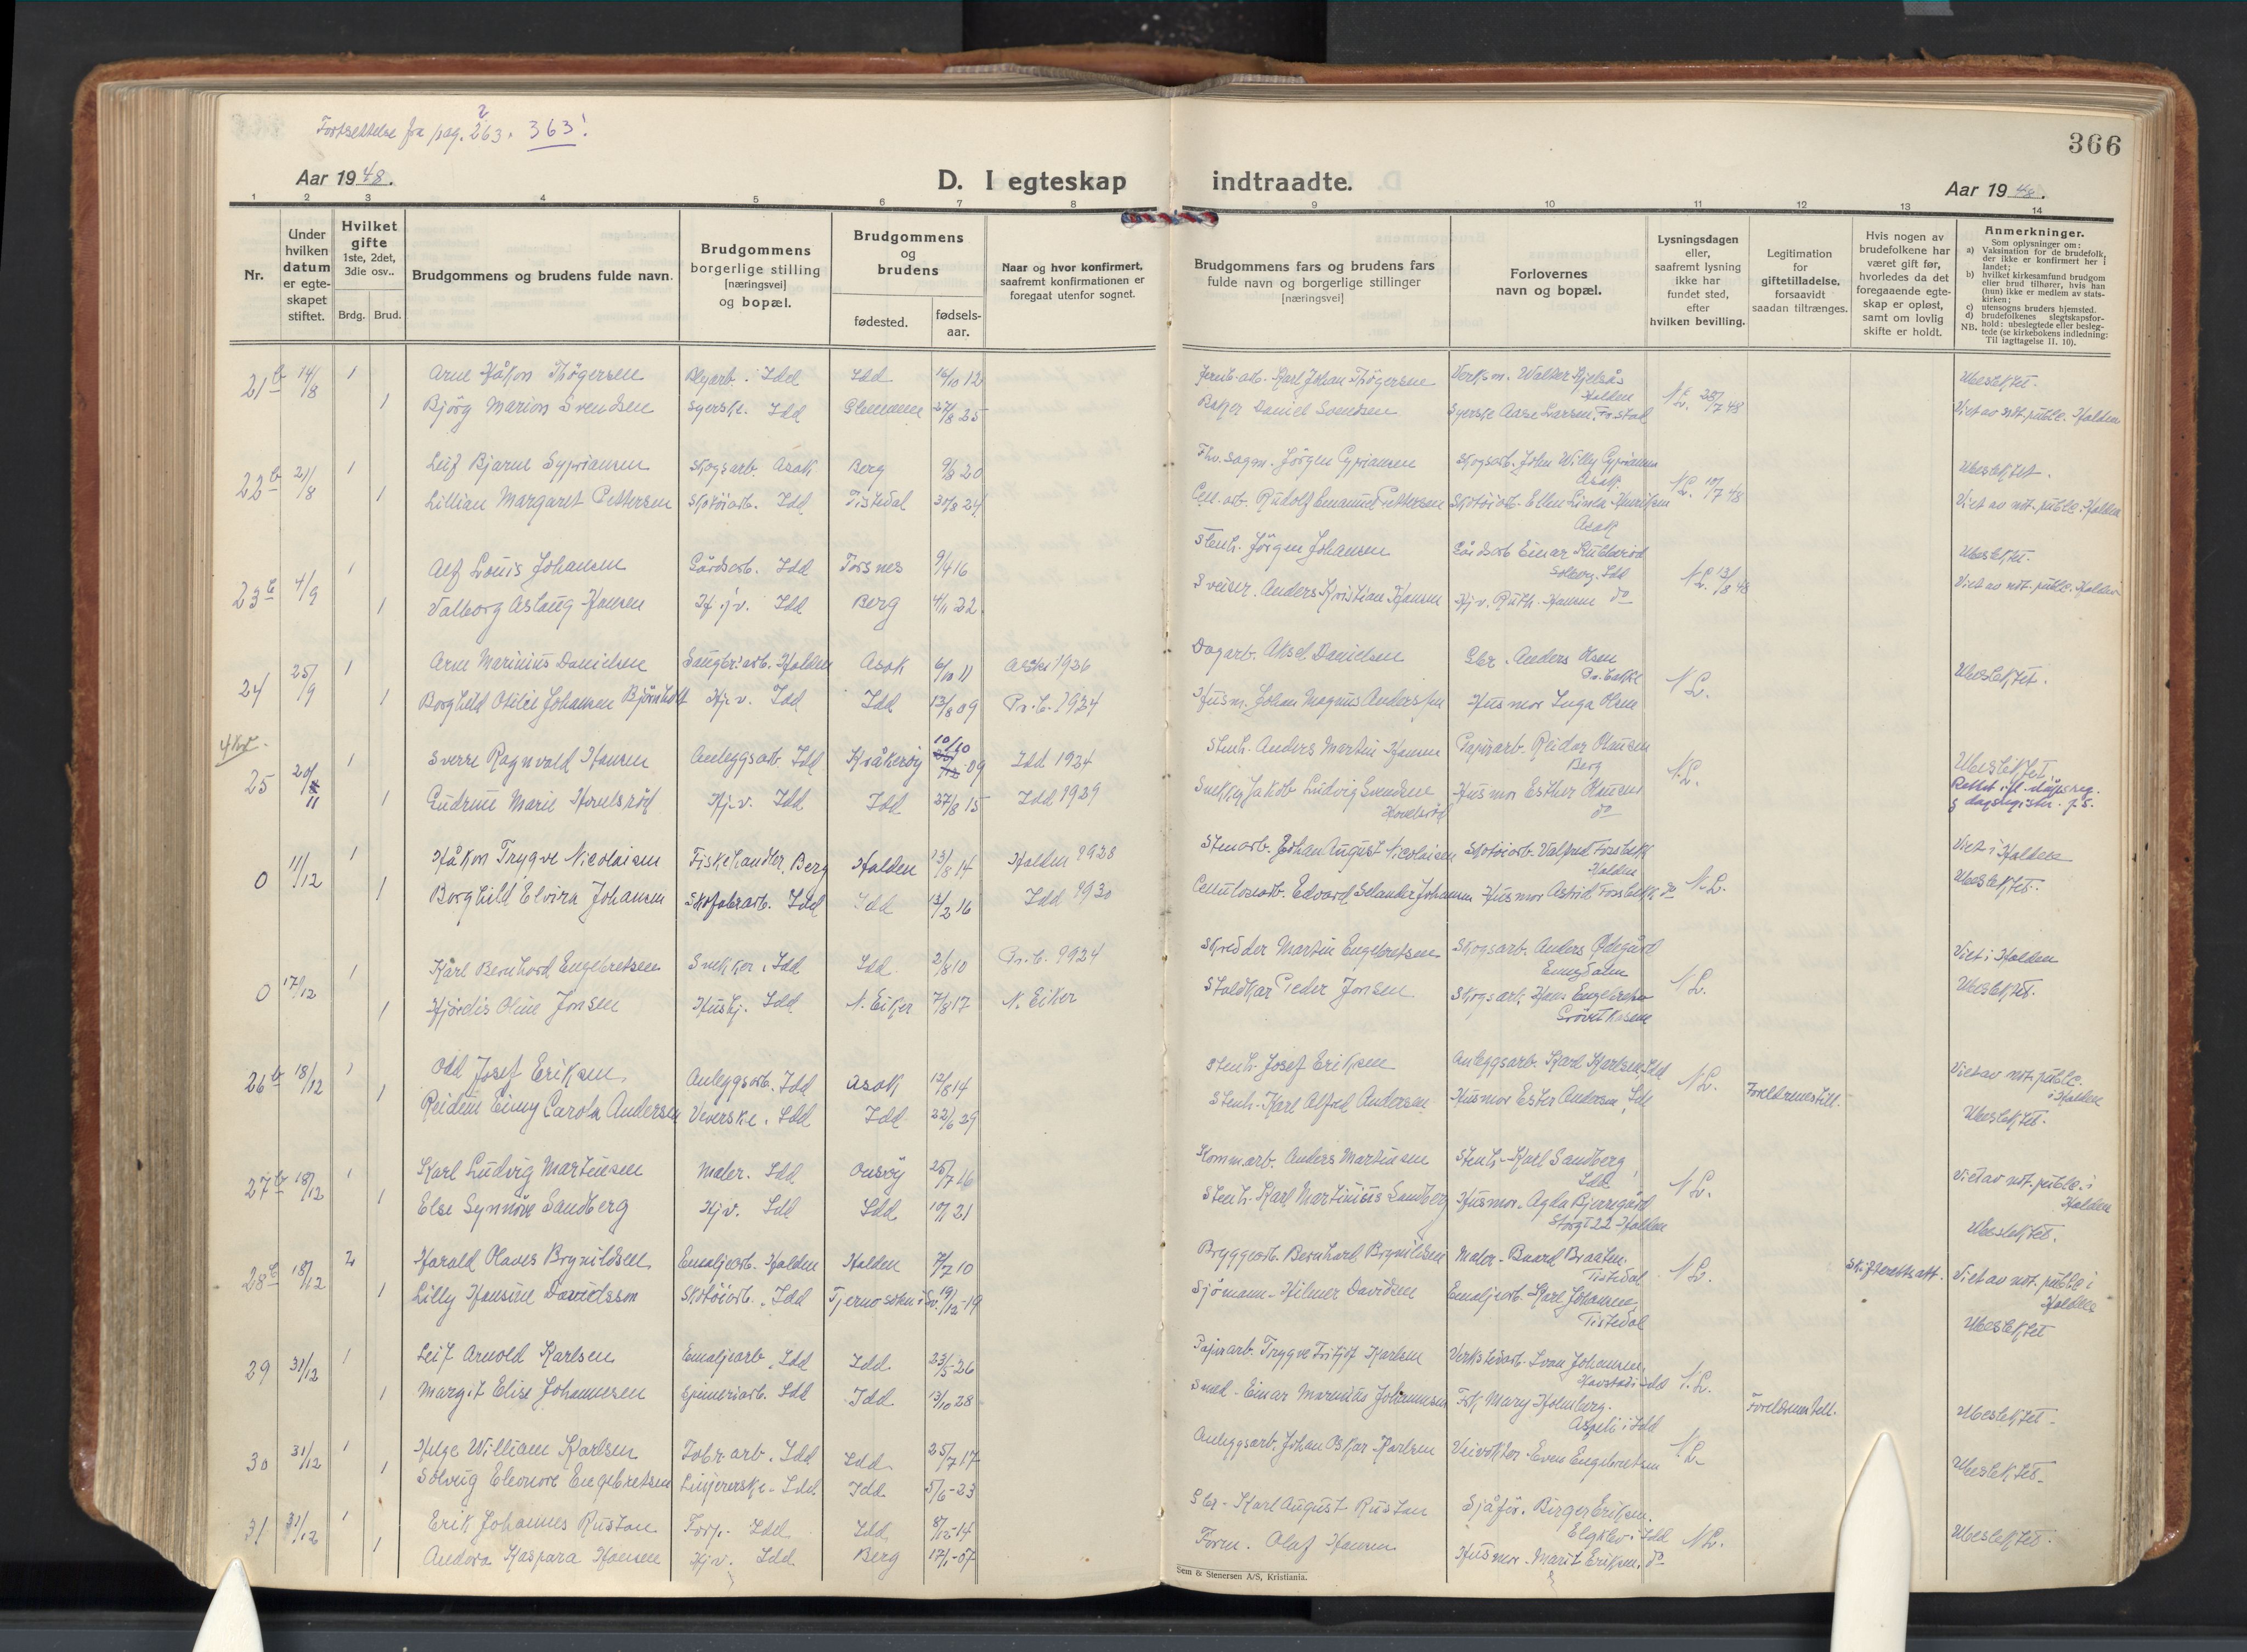 Fortsettelse fra pag. 263. 363!
366
Aar 1948.
D. I egteskap indtraadte.
Aar 1948.
1 2 3 4 5 6 7 8 9 10 11 12 13 14
Nr.
Under hvilken datum er egteskapet stiftet.
Hvilket gifte 1ste, 2det, 3die osv..
Brdg. Brud.
Brudgommens og brudens fulde navn.
Brudgommens borgerlige stilling [næringsvei] og bopæl.
Brudgommens og brudens
fødested. fødsels-aar.
Naar og hvor konfirmert, saafremt konfirmationen er foregaat utenfor sognet.
Brudgommens fars og brudens fars fulde navn og borgerlige stillinger [næringsvei]
Forlovernes navn og bopæl.
Lysningsdagen eller, saafremt lysning ikke har fundet sted, efter hvilken bevilling.
Legitimation for giftetilladelse, forsaavidt saadan tiltrænges.
Hvis nogen av brudefolkene har været gift før, hvorledes da det foregaaende egteskap er opløst, samt om lovlig skifte er holdt.
Anmerkninger.
Som oplysninger om:
a) Vaksination for de brudefolk, der ikke er konfirmert her i landet;
b) hvilket kirkesamfund brudgom eller brud tilhører, hvis han (hun) ikke er medlem av statskirken;
c) utensogns bruders hjemsted.
d) brudefolkenes slegtskapsforhold: ubeslegtede eller beslegtede (se kirkebokens indledning: Til iagttagelse II. 10).
NB.
21b 14/8 1 Arne Håkon Thøgersen Blyarb. Idd Idd 16/10 12 Jernb.arb. Karl Johan Thøgersen Verksm. Walter Kjelsås Halden N.L. 28/7 48 Ubeslektet.
1 Bjørg Marion Svendsen Syerske. Idd Glemmen 27/8 25 Baker Daniel Svendsen Syerske Aase Larsen Viet av not. publ. Halden
22b 21/8 1 Leif Bjarne Sypriansen Skogsarb. Asak Berg 9/8 20 Fhv. sagm. Jörgen Cypriansen Skogsarb. John Willy Cypriansen Asak N.L. 17/7 48 Ubeslektet.
1 Lillian Margaret Pettersen Skotöiarb. Idd Tistedal 31/8 24 Cell.arb. Rudolf Emanuel Pettersen Skotöiarb. Ellen Linea Henriksen Asak Viet av not. publ. Halden
23b 4/9 1 Alf Louis Johansen Gårdsarb. Idd Torsnes 9/4 16 Stenh. Jörgen Johansen Gårdsarb Einar Solberg. Idd N.L. 13/8 48 Ubeslektet.
1 Valborg Aslaug Hansen Hj.v. Idd Berg 4/11 22 Sveiser. Anders Kristian Hansen Hj.v. Ruth Hansen do Viet av not. publ. Halden
24 25/9 1 Arne Marinius Danielsen Saugbr.arb. Halden Asak 6/10 11 Asak 1926 Dagarb. Aksel Danielsen Gbr. Anders Olsen Pr.bakke N.L. Ubeslektet.
1 Borghild Otilie Johansen Björnholt Hj.v. Idd Idd 13/8 09 Pr.b. 1924 Husm. Johan Magnus Anderssen Husmor Inga Olsen
25 20/11 1 Sverre Ragnvald Hansen Anleggsarb Idd Kråkeröy 10/10 09 Idd 1924 Stenh. Anders Martin Hansen Papirarb. Reidar Olausen Berg N.L. Ubeslektet.
1 Gudrun Marie Hovelsröd Hj.v. Idd Idd 27/8 15 Idd 1929 Snekker Jakob Ludvig Svendsen Hovelsröd Husmor Esther Olausen do Rettet ifl. dåpsreg. g dagregister. J.S.
0 11/12 1 Håkon Trygve Nicolaisen Fiskehandler, Berg Halden 13/8 14 Halden 1928 Stenarb. Johan August Nicolaisen Skotöiarb. Valfred Fossbekk Halden N.L. Viet i Halden
1 Borghild Elvira Johansen Skofabrarb. Idd Idd 13/2 16 Idd 1930 Cellulosearb. Edvard Selander Johansen Husmor Astrid Fossbekk do Ubeslektet.
0 17/12 1 Karl Bernhard Engebretsen Snekker, Idd Idd 2/8 10 Pr.b. 1924 Skredder Martin Engebretsen Skogsarb. Anders Ödegård N.L. Viet i Halden
1 Hjördis Oline Jonsen Hushj. Idd N. Eiker 7/8 17 N. Eiker Staldkar Peder Jonsen Skogsarb. Hans Engebretsen Ubeslektet.
26b 18/12 1 Odd Josef Eriksen Anleggsarb. Idd Asak 12/8 14 Stenh. Josef Eriksen Anleggsarb. Karl Karlsen, Idd N.L. Viet av not. publ. i Halden
1 Reidun Einny Carola Andersen Veverske, Idd Idd 22/6 29 Stenh. Karl Alfred Andersen Husmor Ester Andersen, Idd Foreldrenes till. Ubeslektet.
27b 18/12 1 Karl Ludvig Martinsen Maler. Idd Onsöy 25/7 16 Komm.arb. Anders Martinsen Stenh. Karl Sandberg, Idd N.L. Viet av not. publ. i Halden
1 Else Synnöve Sandberg Hj.v. Idd Idd 10/1 21 Stenh. Karl Martinius Sandberg Husmor. Agda Bjerregård Storgt 22 Halden Ubeslektet.
28b 18/12 2 Harald Olaves Brynildsen Emaljearb. Halden Halden 7/7 10 Bryggearb. Bernhard Brynildsen Maler Braaten. Tistedal N.L. Skifterettsatt. Viet av not. publ. i Halden
1 Lilly Hansine Davidsson Skotöiarb., Idd Tjernö sokn i Sv. 19/12-19 Sjömann Hilmer Davidsen Emaljearb. Karl Johansen, Tistedal Ubeslektet
29 31/12 1 Leif Arnold Karlsen Emaljearb, Idd Idd 23/5-26 Papirarb. Trygve Fritjof Karlsen Verkstedarb. Ivan Johansen, Idd N.L.
1 Margit Elise Johannesen Spinneriarb. Idd Idd 13/10 28 Smed. Einar Marinius Johannesen Frk Mary Holmberg. Aspeli i Idd Foreldrenes till. Ubeslektet.
30 31/12 1 Helge William Karlsen Fabr.arb. Idd Idd 25/7 17 Anleggsarb. Johan Oskar Karlsen Veivokter Even Engebretsen N.L. Ubeslektet.
1 Solveig Eleonore Engebretsen Linjererske. Idd Idd 5/6-23
31 31/12 1 Erik Johannes Rustan Forp. Idd Idd 8/12-14 Gbr. Karl August Rustan Sjåför. Birger Eriksen. Idd N.L. Ubeslektet.
1 Andora Kaspara Hansen Hj.v. Idd Berg 17/1-07 Form. Olaf Hansen Husmor. Marit Eriksen, do
Sem & Stenersen A/S, Kristiania.